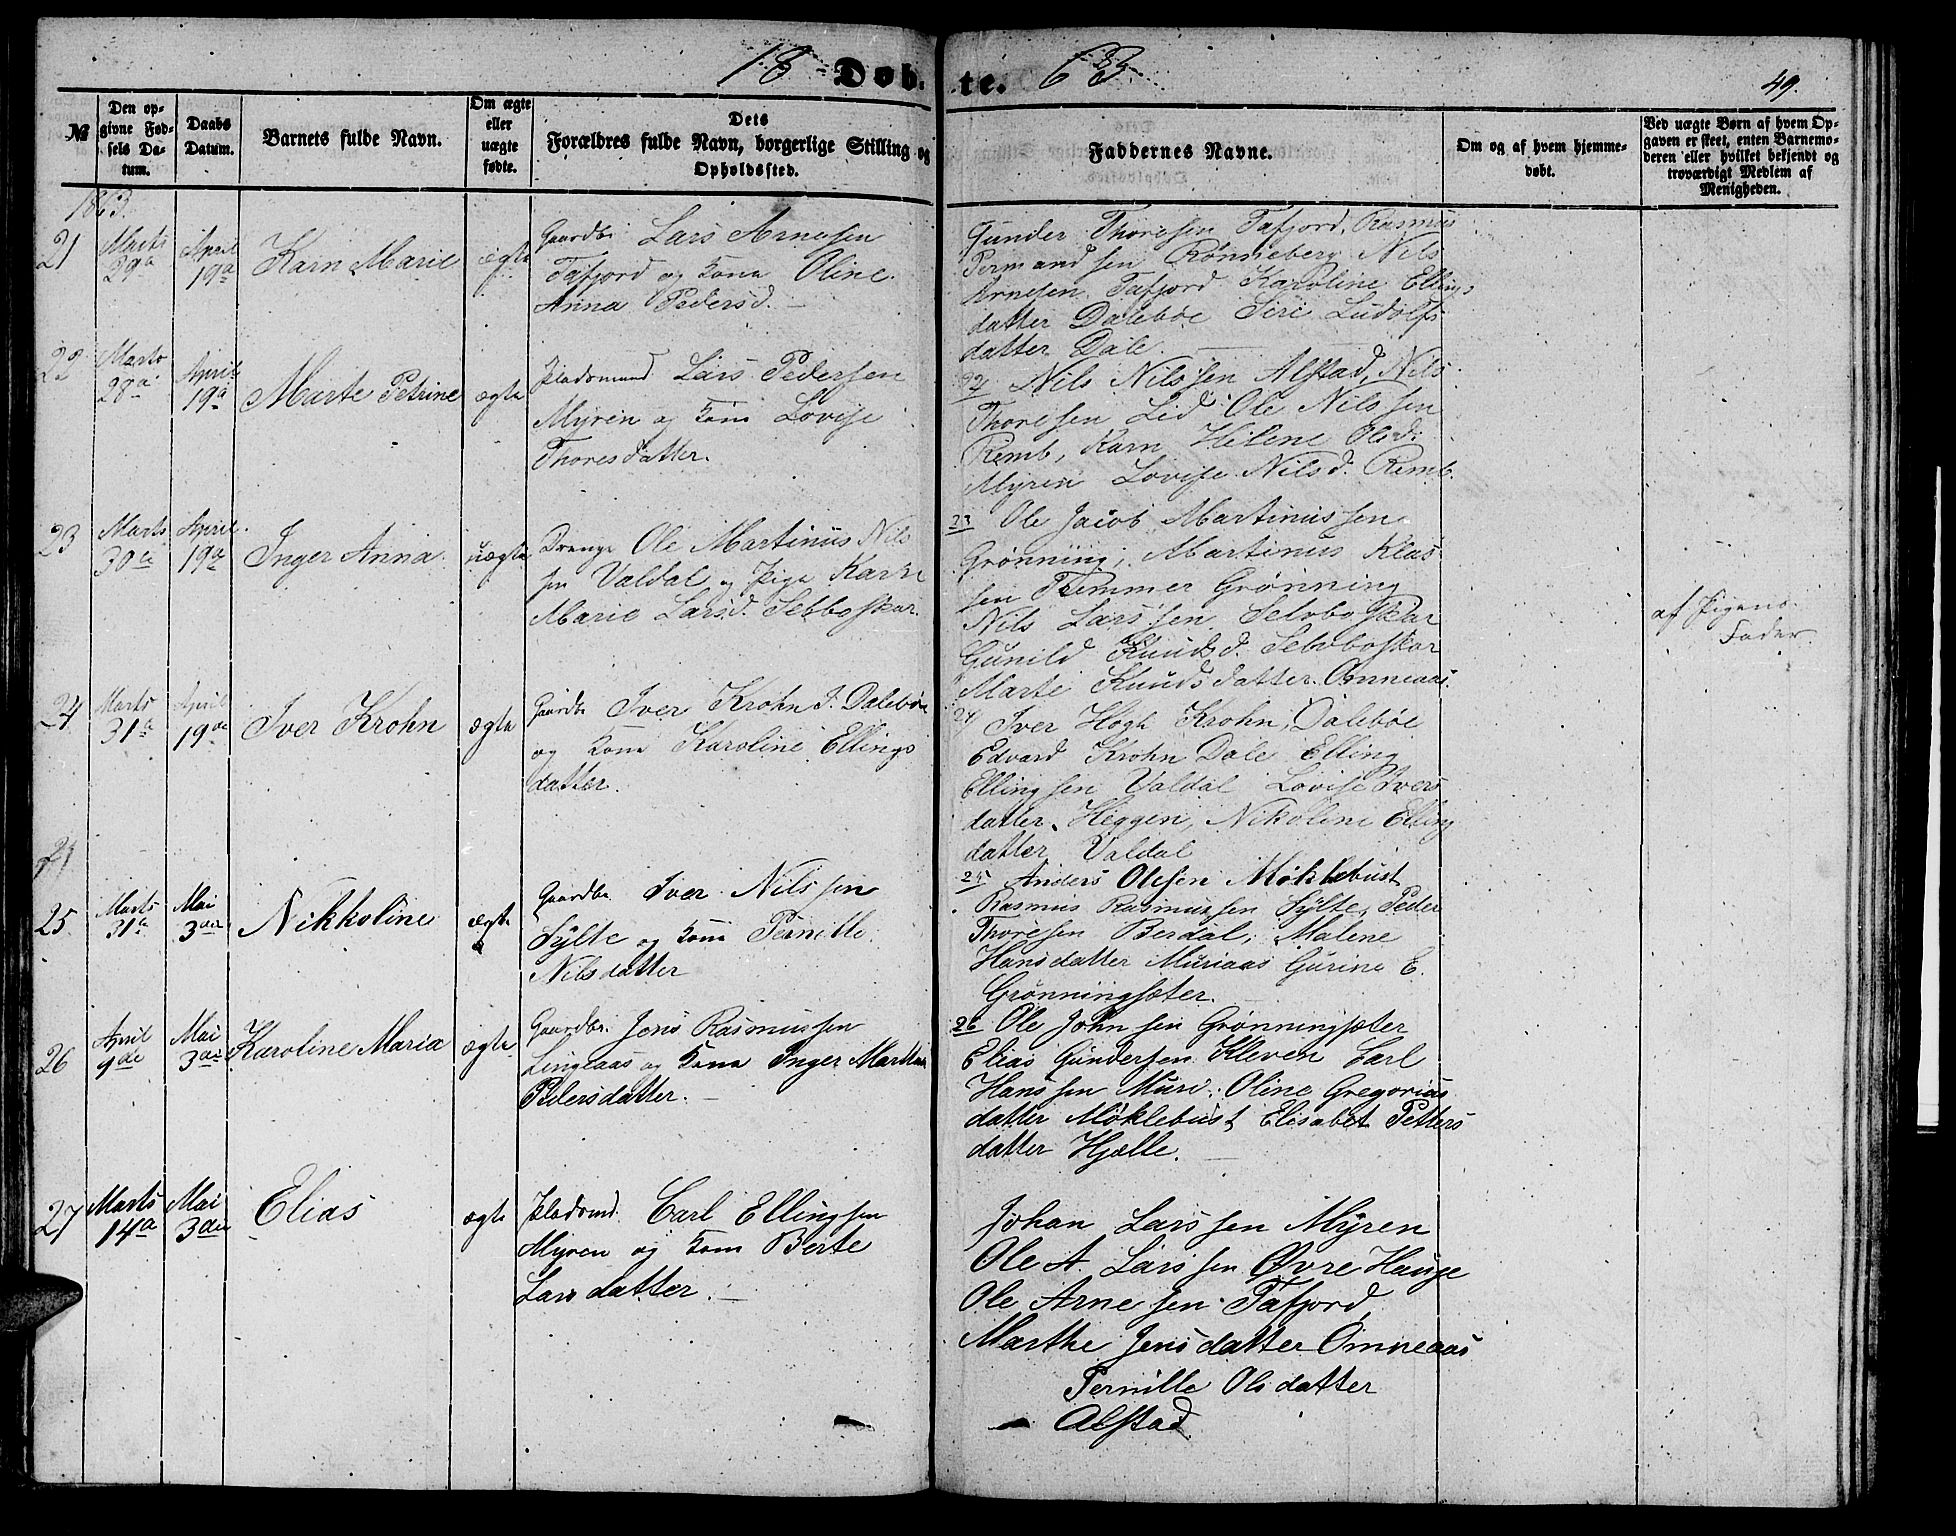 18 Døb- te. 63
49.
№
Den op-
givne Fød-
sels Da-
tum.
Daabs
Datum.
Barnets fulde Navn.
Om ægte
eller
uægte
fødte.
Dets
Forældres fulde Navn, borgerlige Stilling og
Opholdssted.
Faddernes Navne.
Om og af hvem hjemme-
døbt.
Ved uægte Børn af hvem Op-
gaven er skeet, enten Barnemo-
deren eller hvilket bekjendt og
troværdigt Medlem af
Menigheden.
1863.
21
Marts
29de
April
19de
Karn Marie
ægte
Gaardbr. Lars Arnesen
Tafjord og Kone Oline
Anna Pedersd. —
Gunder Thoresen Tafjord, Rasmus
Permandsen Rønneberg Nils
Arnesen Tafjord Karoline Ellings
datter Dalebøe Siri Ludolfs
datter Dale.
22
Marts
28de
April
19de
Marte Petrine
ægte
Pladsmand Lars Pedersen
Myren og Kone Lovise
Thoresdatter.
22 Nils Nilssen Alstad, Nils
Thoresen Lid Ole Nilssen
Remb, Karn Helene Olsd.
Myren Lovise Nilsd. Remb.
23
Marts
30de
April
19de
Inger Anna
uægte
Drenge Ole Martinus Nils
sen Valdal og Pige Karn
Marie Larsd. Selboskar.
23 Ole Jacob Martinussen
Grønning, Martinus Klas
sen Remmer Grønning
Nils Larssen Selboskar
Gunild Knudsd. Selboskar
Marte Knudsdatter Omneaas.
af Pigens
Fader.
24
Marts
31de
April
19de
Iver Krohn
ægte
Gaardbr. Iver Krohn I. Dalebøe
og Kone Karoline Ellings
datter.
24 Iver Høgh Krohn, Dalebøe
Edvard Krohn Dale Elling
Ellingsen Valdal Lovise Ivers
datter Heggen, Nikoline Elling
datter Valdal
25
Marts
31te
Mai
3die
Nikkoline
ægte
Gaardbr. Iver Nilssen
Sylte og Kone Pernille
Nilsdatter
25 Anders Olesen Møklebust
Rasmus Rasmussen Sylte, Peder
Thoresen Berdal, Malene
Hansdatter Muriaas Gurine E.
Grønningsæter.
26
April
9de
Mai
3die
Karoline Maria
ægte
Gaardbr. Jens Rasmussen
Lingaas og Kone Inger Martha
Pedersdatter. —
26 Ole Johnsen Grønningsæter
Elias Gundersen Kleven Carl
Hanssen Muri. Oline Gregorius
datter Møklebust Elisabet Petters
datter Hjelle.
27
Marts
14de
Mai
3die
Elias
ægte
Pladsmd. Carl Ellingsen
Myren og Kone Berte
Larsdatter. —
Johan Larssen Myren
Ole A. Larssen Øvre Hauge
Ole Arnesen Tafjord,
Marthe Jensdatter Omneaas
Pernille Olsdatter
Alstad